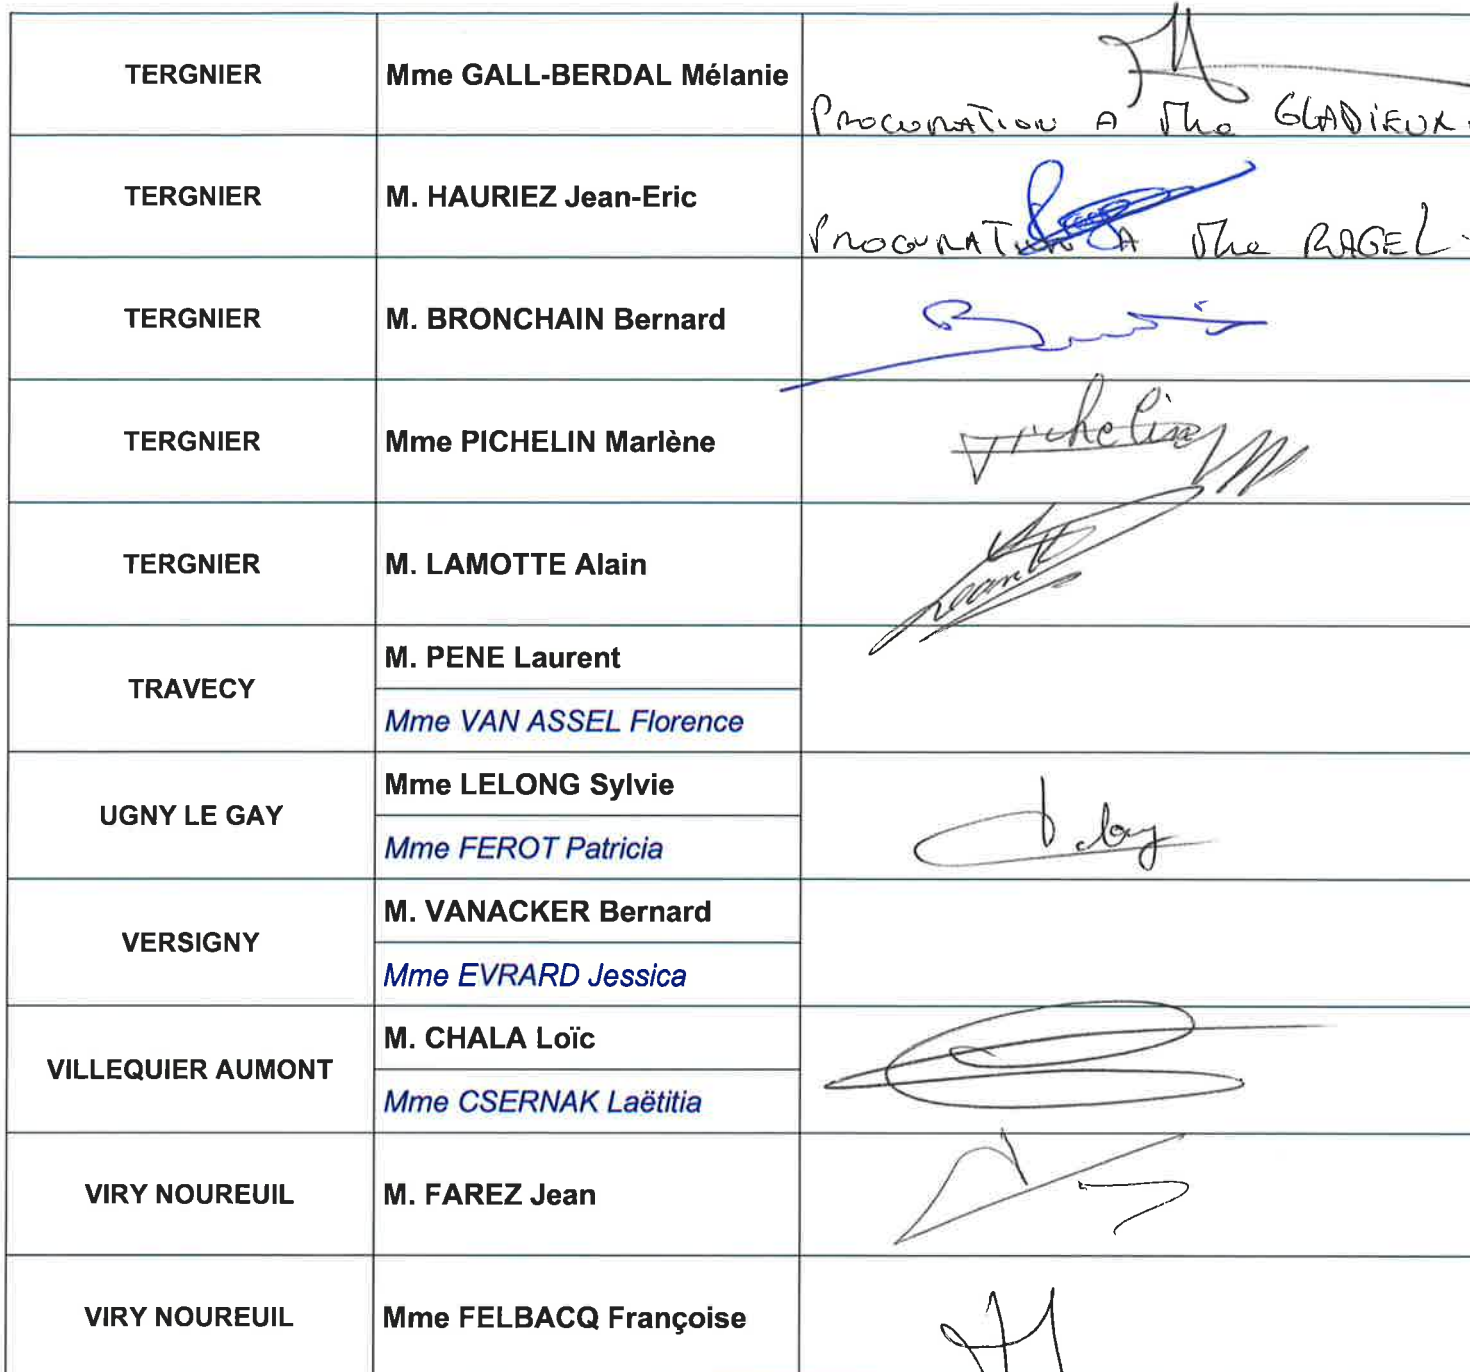 TERGNIER
Mme GALL-BERDAL Mélanie
PROCURATION A Mme GLADIEUX.
TERGNIER
M. HAURIEZ Jean-Eric
PROCURATION A Mme RAGEL.
TERGNIER
M. BRONCHAIN Bernard
TERGNIER
Mme PICHELIN Marlène
Pichelin
TERGNIER
M. LAMOTTE Alain
TRAVECY
M. PENE Laurent
Mme VAN ASSEL Florence
UGNY LE GAY
Mme LELONG Sylvie
Mme FEROT Patricia
VERSIGNY
M. VANACKER Bernard
Mme EVRARD Jessica
VILLEQUIER AUMONT
M. CHALA Loïc
Mme CSERNAK Laëtitia
VIRY NOUREUIL
M. FAREZ Jean
VIRY NOUREUIL
Mme FELBACQ Françoise